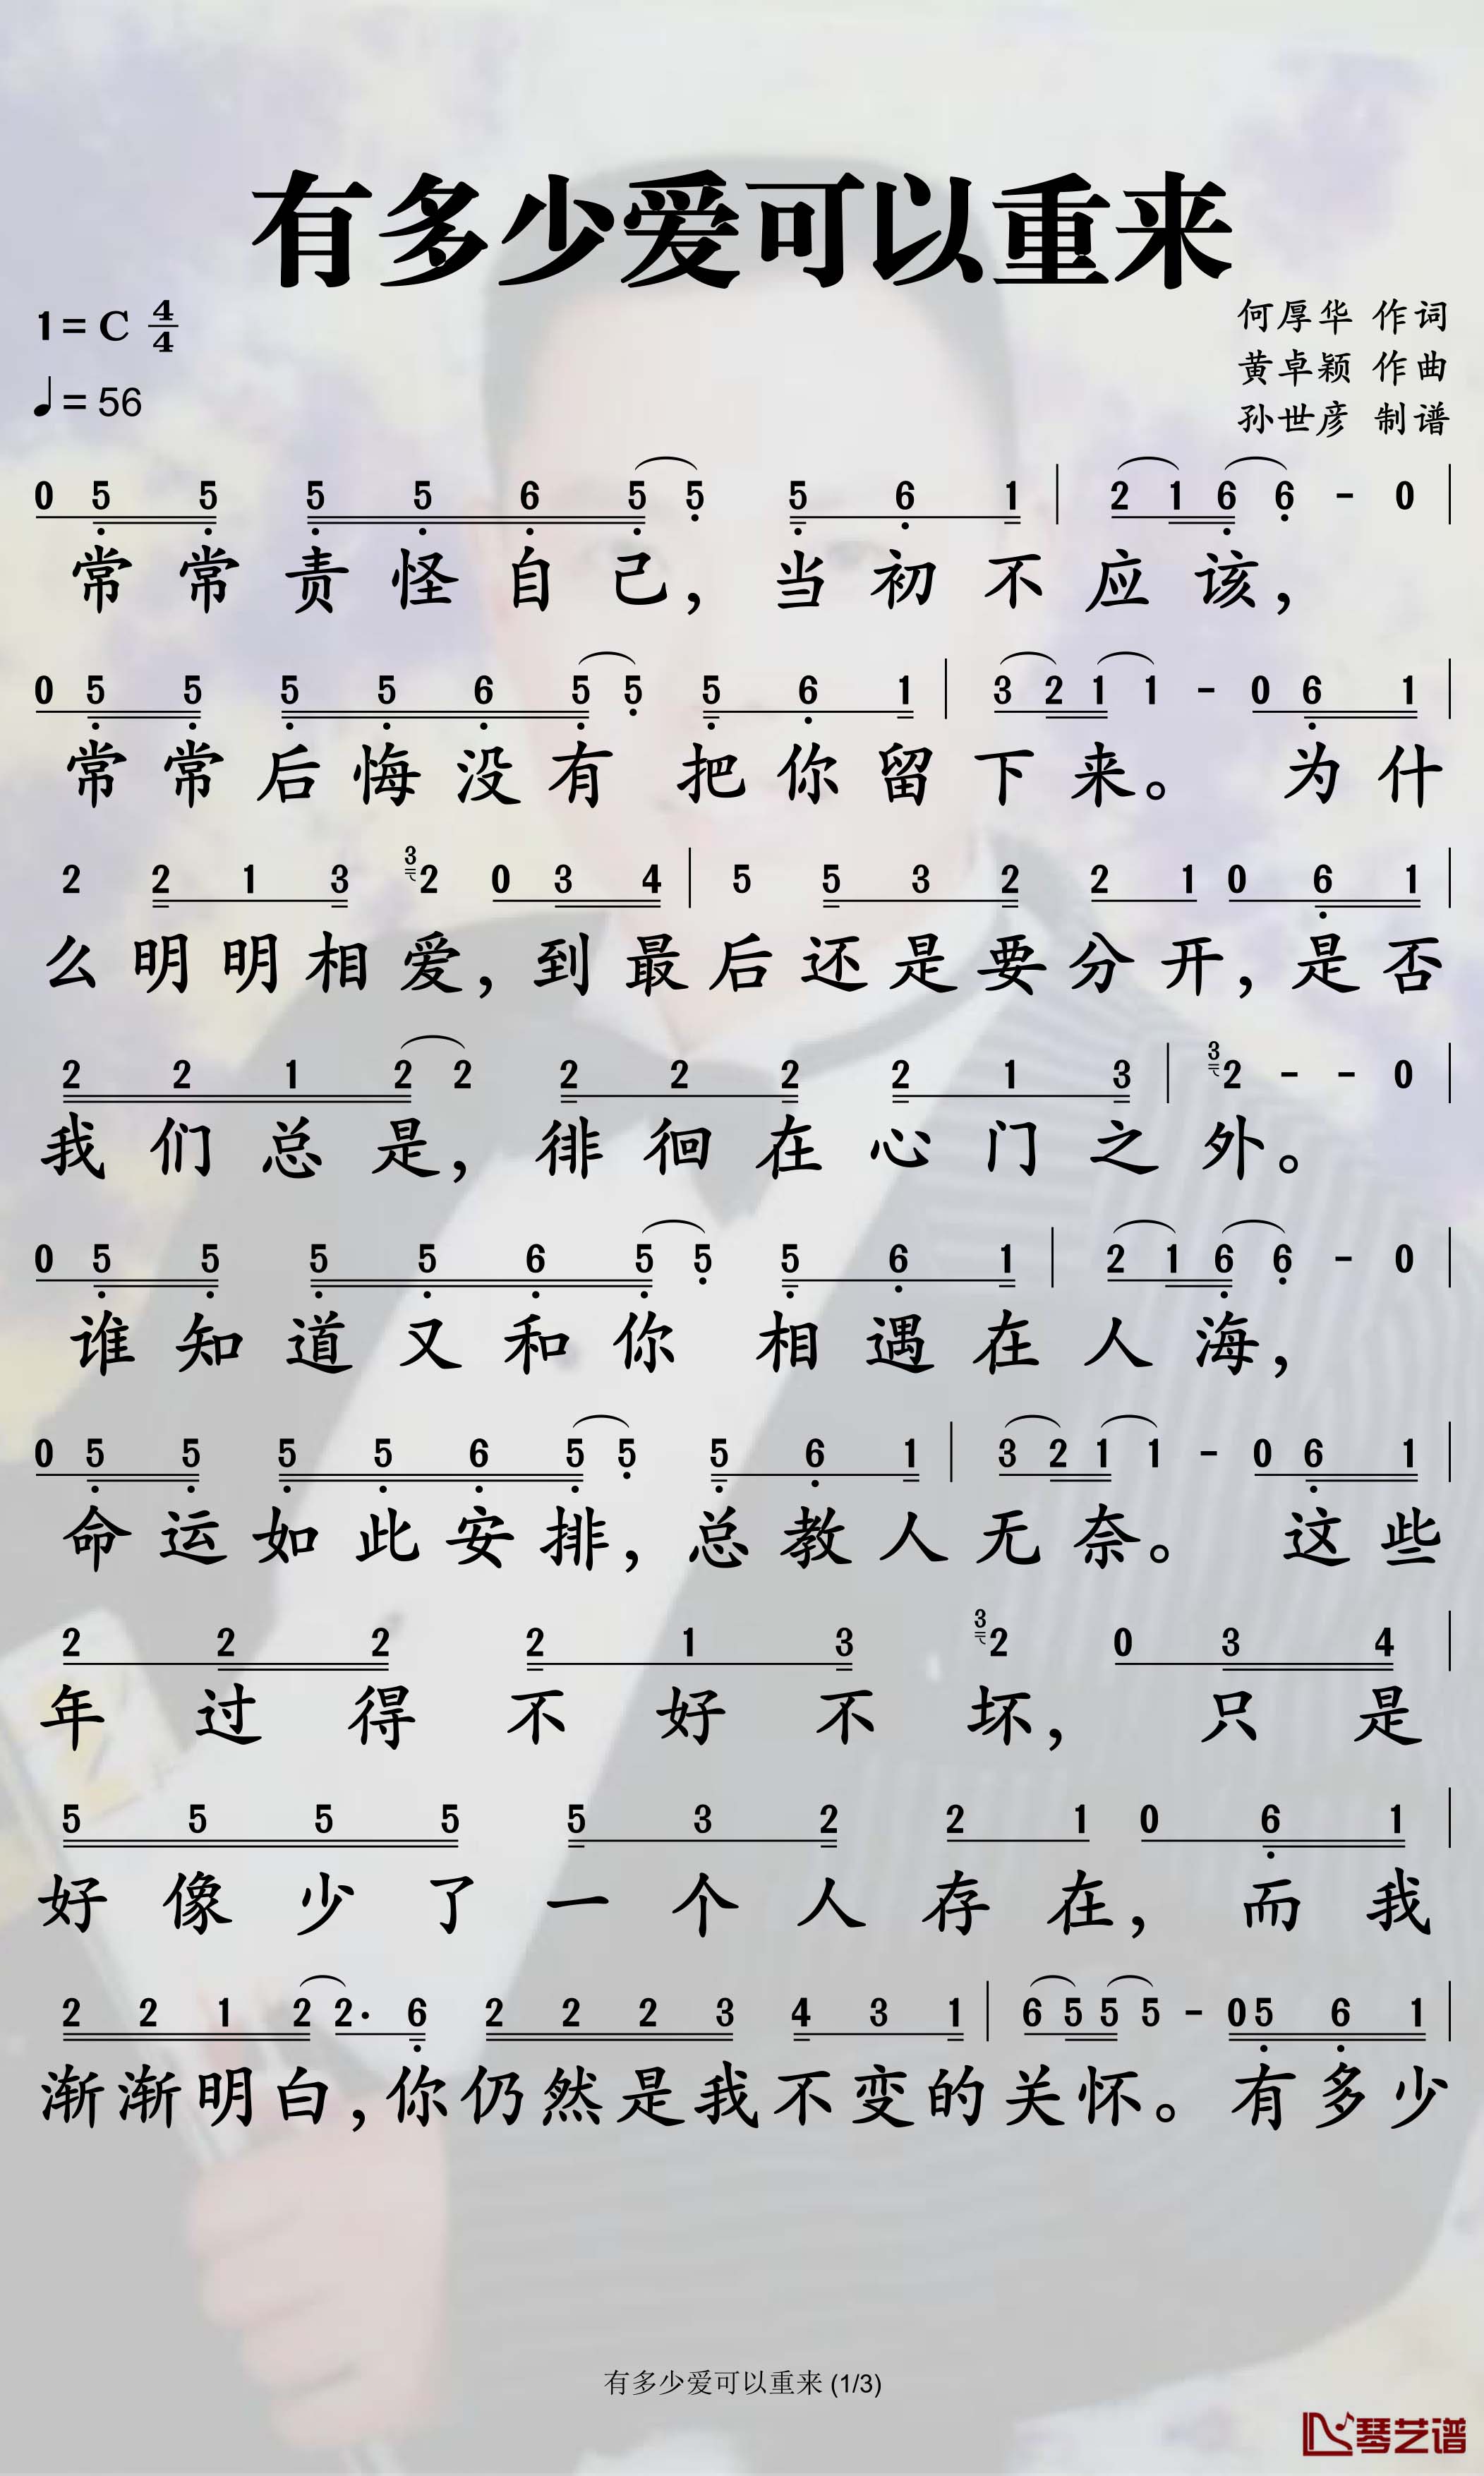 有多少爱可以重来
1=C 4/4
♩=56
何厚华 作词
黄卓颖 作曲
孙世彦 制谱
0 5 5 5 5 6 5 5 5 6 1 | 2 1 6 6 - 0 |
常常责怪自己，当初不应该，
0 5 5 5 5 6 5 5 5 6 1 | 3 2 1 1 - 0 6 1 |
常常后悔没有 把你留下来。 为什
2 2 1 3 3 2 0 3 4 | 5 5 3 2 2 1 0 6 1 |
么明明相爱，到最后还是要分开，是否
2 2 1 2 2 2 2 2 2 1 3 | 3 2 - - 0 |
我们总是，徘徊在心门之外。
0 5 5 5 5 6 5 5 5 6 1 | 2 1 6 6 - 0 |
谁知道又和你 相遇在人海，
0 5 5 5 5 6 5 5 5 6 1 | 3 2 1 1 - 0 6 1 |
命运如此安排，总教人无奈。 这些
2 2 2 2 1 3 3 2 0 3 4 |
年过得不好不坏，只是
5 5 5 5 5 3 2 2 1 0 6 1 |
好像少了一个人存在，而我
2 2 1 2 2· 6 2 2 2 3 4 3 1 | 6 5 5 5 - 0 5 6 1 |
渐渐明白，你仍然是我不变的关怀。有多少
有多少爱可以重来 (1/3)
琴艺谱